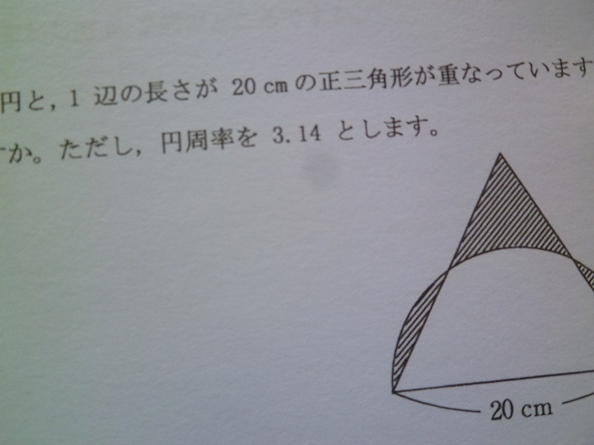 円と，1 辺の長さが 20 cm の正三角形が重なっています
か。ただし，円周率を 3.14 とします。
20 cm